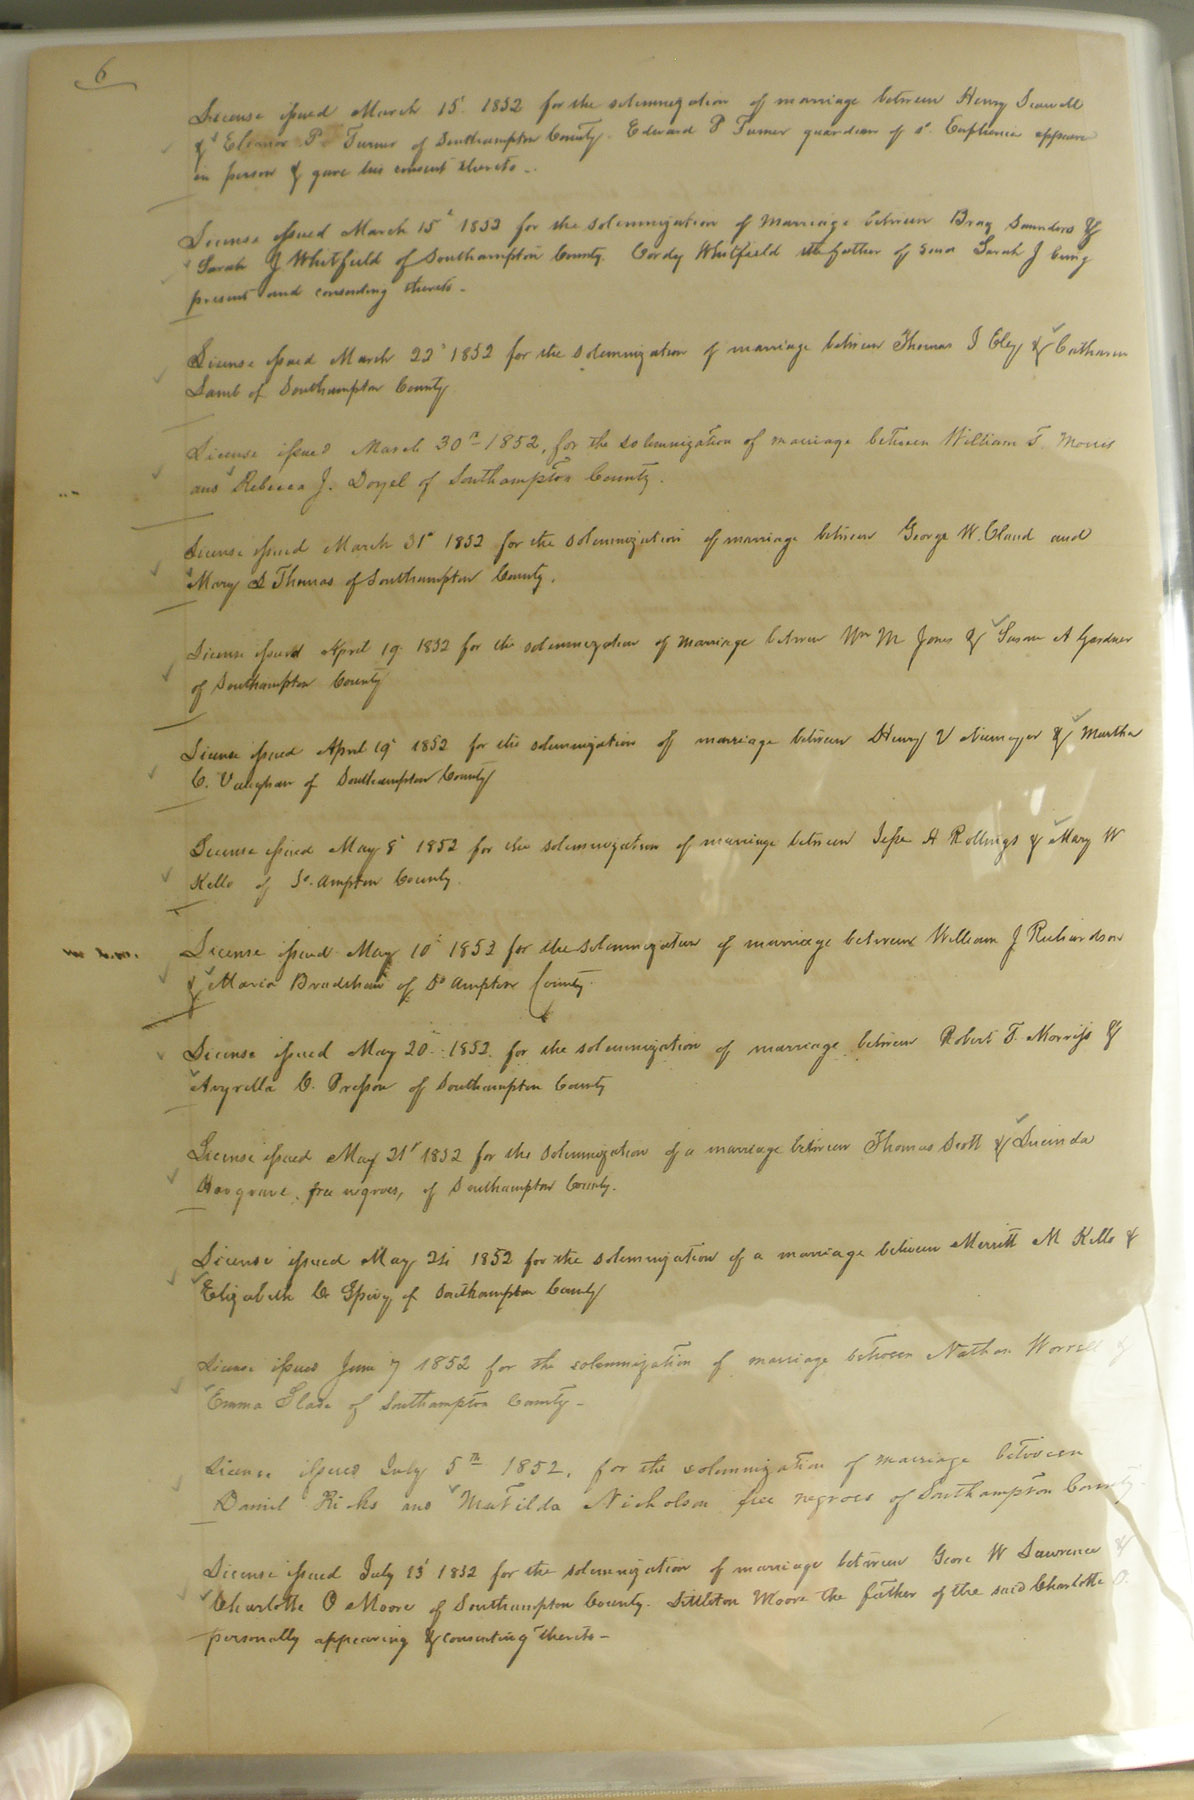 6
License issued March 15 1852 for the solemnization of marriage between Henry
& Eleanor P Turner of Southampton County. Edward P Turner guardian of sd. appears
in person & gave his consent thereto -
License issued March 15 1852 for the solemnization of marriage between Saunders &
Sarah J Whitfield of Southampton County. Cordy Whitfield the father of said Sarah J being
present and consenting thereto -
License issued March 22 1852 for the solemnization of marriage between Thomas J Eley & Catharine
Lamb of Southampton County
License issued March 30th 1852, for the solemnization of marriage between William T. Morris
and Rebecca J. Doyel of Southampton County.
License issued March 31st 1852 for the solemnization of marriage between George W. Claud and
Mary S Thomas of Southampton County.
License issued April 19 1852 for the solemnization of marriage between Wm M Jones & Susan A Gardner
of Southampton County
License issued April 19 1852 for the solemnization of marriage between Henry V Niemeyer & Martha
C. Vaughan of Southampton County
License issued May 8 1852 for the solemnization of marriage between Jesse A Rollings & Mary W
Kello of So. Ampton County.
License issued May 10 1852 for the solemnization of marriage between William J Richardson
& Maria Bradshaw of So Ampton County.
License issued May 20 1852. for the solemnization of marriage between Robert T. Morriss &
C. Presson of Southampton County
License issued May 21st 1852 for the solemnization of a marriage between Thomas Scott & Lucinda
Hargrave, free negroes, of Southampton County.
License issued May 24 1852 for the solemnization of a marriage between Merritt M Kello &
Elizabeth C Spivy of Southampton County
License issued June 7 1852 for the solemnization of marriage between Nathan Worrell &
Emma Slade of Southampton County -
License issued July 5th 1852, for the solemnization of marriage between
Daniel Ricks and Matilda Nicholson free negroes of Southampton County.
License issued July 15 1852 for the solemnization of marriage between Geore W Lawrence &
Charlotte O Moore of Southampton County. Littleton Moore the father of the said Charlotte O.
personally appearing & consenting thereto -